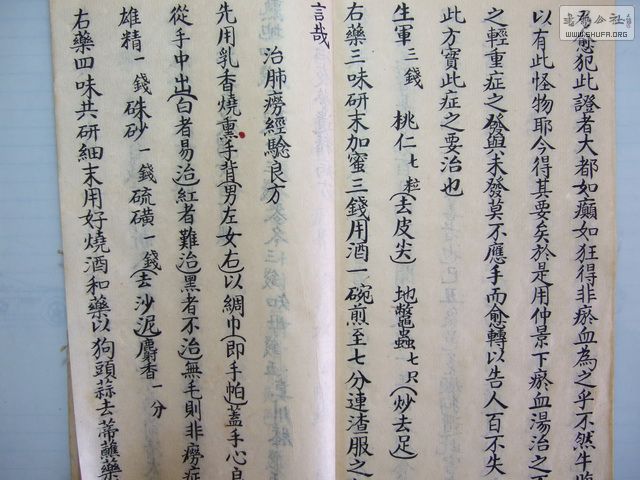 愈犯此證者大都如癲如狂得非瘀血為之乎不然牛
以有此怪物耶今得其要矣於是用仲景下瘀血湯治之
之輕重症之發與未發莫不應手而愈轉以告人百不失
此方實此症之要治也
生軍三錢 桃仁七粒(去皮尖) 地鱉蟲七只(炒去足)
右藥三味研末加蜜三錢用酒一碗煎至七分連渣服之
言哉
治肺癆經驗良方
先用乳香燒熏手背(男左女右)以綢巾(即手帕)蓋手心
從手中出(白者易治紅者難治黑者不治無毛則非癆症
雄精一錢硃砂一錢硫磺一錢(去沙泥)麝香一分
右藥四味共研細末用好燒酒和藥以狗頭蒜去蒂蘸藥
WWW.SHUFA.ORG